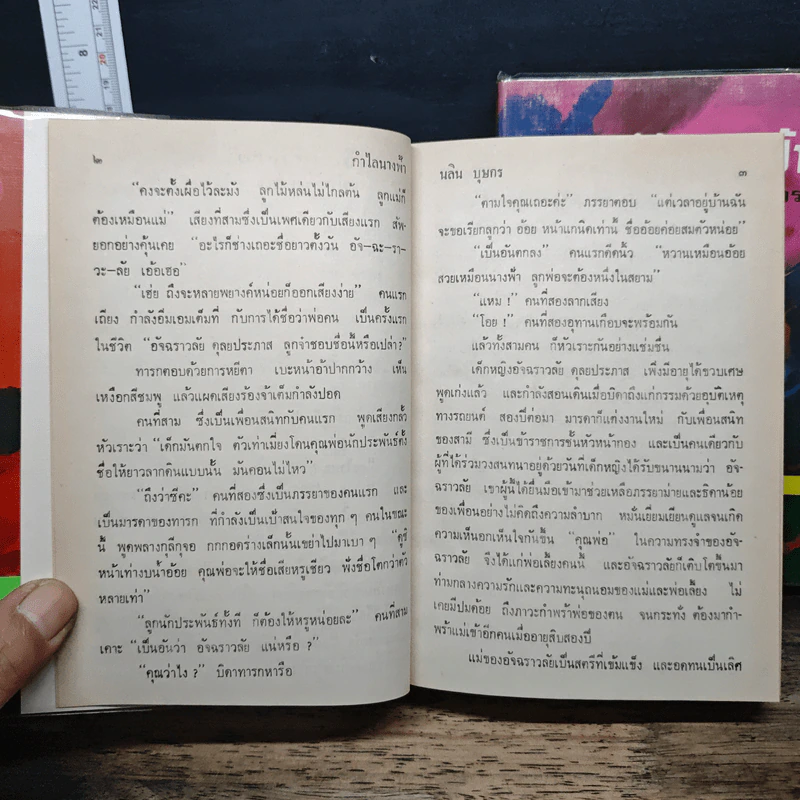 ๒
กำไลนางฟ้า
“คงจะตั้งเผื่อไว้ละมัง ลูกไม้หล่นไม่ไกลต้น ลูกแม่ก็
ต้องเหมือนแม่” เสียงที่สามซึ่งเป็นเพศเดียวกับเสียงแรก สัพ-
ยอกอย่างคุ้นเคย “อะไรก็ช่างเถอะชื่อยาวตั้งวัน อัจ—ฉะ—รา—
วะ—ลัย เอ้อเฮอ”
“เฮ่ย ถึงจะหลายพยางค์หน่อยก็ออกเสียงง่าย” คนแรก
เถียง กำลังอิ่มเอมเต็มที่ กับการได้ชื่อว่าพ่อคน เป็นครั้งแรก
ในชีวิต “อัจฉราวลัย ดุลยประภาส ลูกจ๋าชอบชื่อนี้หรือเปล่า?”
ทารกตอบด้วยการหยีตา เบะหน้าอ้าปากกว้าง เห็น
เหงือกสีชมพู แล้วแผดเสียงร้องจ้าเต็มกำลังปอด
คนที่สาม ซึ่งเป็นเพื่อนสนิทกับคนแรก พูดเสียงกลั้ว
หัวเราะว่า “เด็กมันตกใจ ตัวเท่าเมี่ยงโดนคุณพ่อนักประพันธ์ตั้ง
ชื่อให้ยาวลากดินแบบนั้น มันคอนไม่ไหว”
“ถึงว่าซีคะ” คนที่สองซึ่งเป็นภรรยาของคนแรก และ
เป็นมารดาของทารก ที่กำลังเป็นเป้าสนใจของทุก ๆ คนในขณะ
นี้ พูดพลางกุลีกุจอ กกกอดร่างเล็กนั้นเขย่าไปมาเบา ๆ “ดูซิ
หน้าเท่างบน้ำอ้อย คุณพ่อจะให้ชื่อเสียหรูเชียว ฟังชื่อโตกว่าตัว
หลายเท่า”
“ลูกนักประพันธ์ทั้งที ก็ต้องให้หรูหน่อยละ” คนที่สาม
เคาะ “เป็นอันว่า อัจฉราวลัย แน่หรือ ?”
“คุณว่าไง ?” บิดาทารกหารือ
นลิน บุษกร
๓
“ตามใจคุณเถอะค่ะ” ภรรยาตอบ “แต่เวลาอยู่บ้านฉัน
จะขอเรียกลูกว่า อ้อย หน้าแกนิดเท่านี้ ชื่ออ้อยค่อยสมตัวหน่อย”
“เป็นอันตกลง” คนแรกดีดนิ้ว “หวานเหมือนอ้อย
สวยเหมือนนางฟ้า ลูกพ่อจะต้องหนึ่งในสยาม”
“แหม !” คนที่สองลากเสียง
“โอย !” คนที่สองอุทานเกือบจะพร้อมกัน
แล้วทั้งสามคน ก็หัวเราะกันอย่างแช่มชื่น
เด็กหญิงอัจฉราวลัย ดุลยประภาส เพิ่งมีอายุได้ขวบเศษ
พูดเก่งแล้ว และกำลังสอนเดินเมื่อบิดาถึงแก่กรรมด้วยอุบัติเหตุ
ทางรถยนต์ สองปีต่อมา มารดาก็แต่งงานใหม่ กับเพื่อนสนิท
ของสามี ซึ่งเป็นข้าราชการชั้นหัวหน้ากอง และเป็นคนเดียวกับ
ผู้ที่ได้ร่วมวงสนทนาอยู่ด้วยวันที่เด็กหญิงได้รับขนานนามว่า อัจ-
ฉราวลัย เขาผู้นี้ได้ยื่นมือเข้ามาช่วยเหลือภรรยาม่ายและธิดาน้อย
ของเพื่อนอย่างไม่คิดถึงความลำบาก หมั่นเยี่ยมเยียนดูแลจนเกิด
ความเห็นอกเห็นใจกันขึ้น “คุณพ่อ” ในความทรงจำของอัจ-
ฉราวลัย จึงได้แก่พ่อเลี้ยงคนนี้ และอัจฉราวลัยก็เติบโตขึ้นมา
ท่ามกลางความรักและความทะนุถนอมของแม่และพ่อเลี้ยง ไม่
เคยมีปมด้อย ถึงภาวะกำพร้าพ่อของตน จนกระทั่ง ต้องมากำ-
พร้าแม่เข้าอีกคนเมื่ออายุสิบสองปี
แม่ของอัจฉราวลัยเป็นสตรีที่เข้มแข็ง และอดทนเป็นเลิศ
8